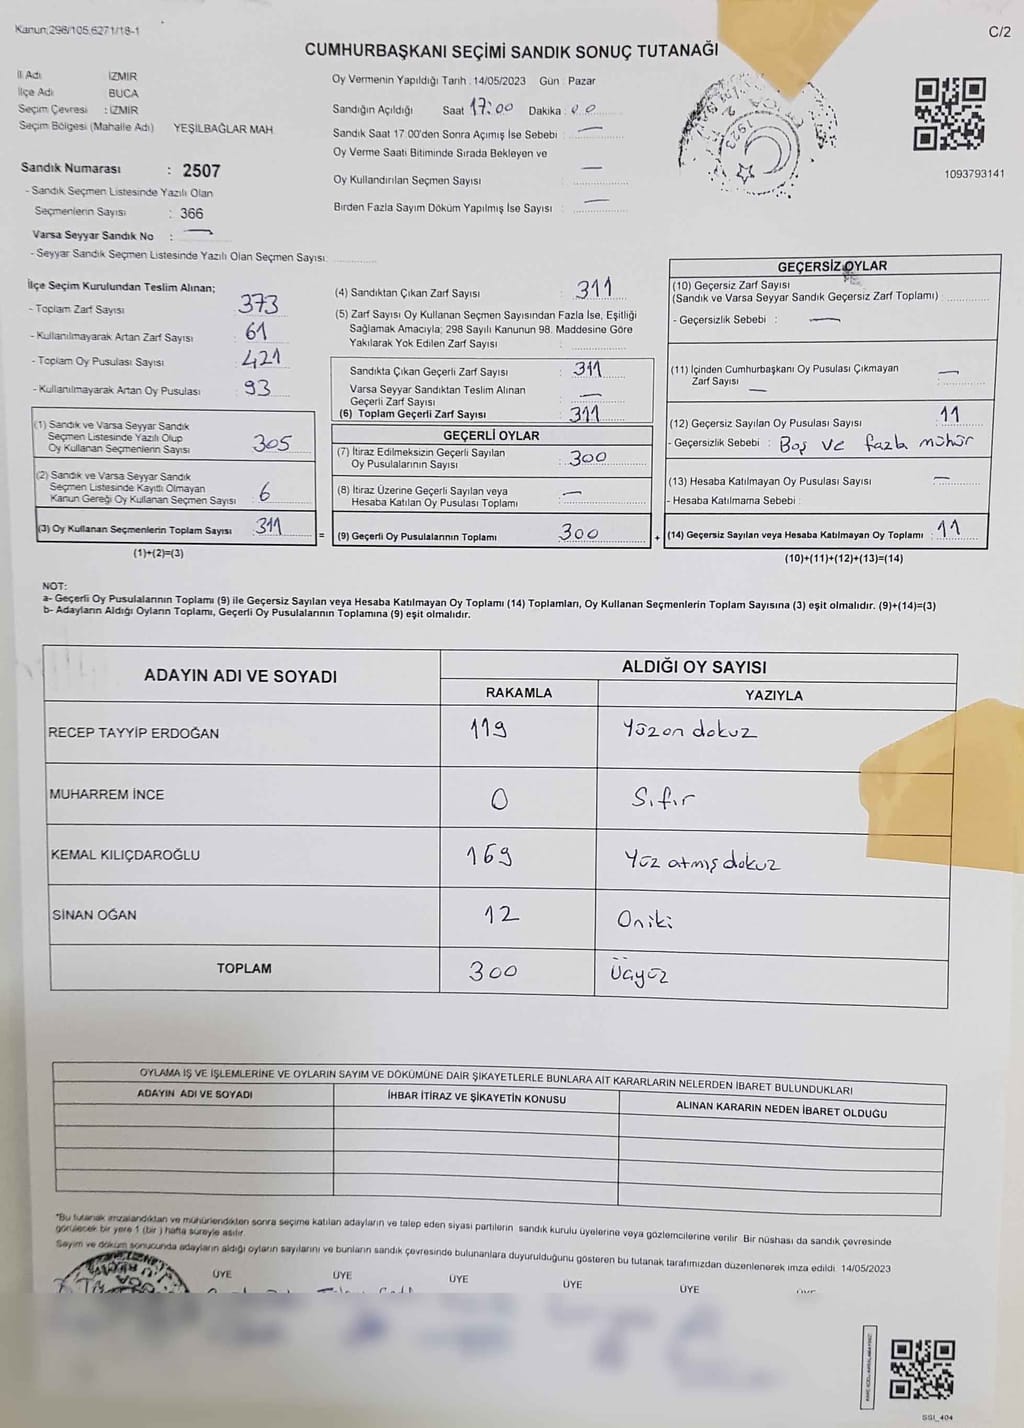 Kanun;298/105,6271/18-1
C/2
CUMHURBAŞKANI SEÇİMİ SANDIK SONUÇ TUTANAĞI
İl Adı İZMİR
İlçe Adı BUCA
Seçim Çevresi : İZMİR
Seçim Bölgesi (Mahalle Adı) YEŞİLBAĞLAR MAH
Sandık Numarası : 2507
- Sandık Seçmen Listesinde Yazılı Olan
Seçmenlerin Sayısı : 366
Varsa Seyyar Sandık No : —
- Seyyar Sandık Seçmen Listesinde Yazılı Olan Seçmen Sayısı:
Oy Vermenin Yapıldığı Tarih : 14/05/2023 Gün : Pazar
Sandığın Açıldığı Saat 17:00 Dakika : 00
Sandık Saat 17.00'den Sonra Açımış İse Sebebi : —
Oy Verme Saati Bitiminde Sırada Bekleyen ve
Oy Kullandırılan Seçmen Sayısı : —
Birden Fazla Sayım Döküm Yapılmış İse Sayısı : —
1923
1093793141
İlçe Seçim Kurulundan Teslim Alınan;
- Toplam Zarf Sayısı : 373
- Kullanılmayarak Artan Zarf Sayısı : 61
- Toplam Oy Pusulası Sayısı : 421
- Kullanılmayarak Artan Oy Pusulası : 93
(1) Sandık ve Varsa Seyyar Sandık
Seçmen Listesinde Yazılı Olup
Oy Kullanan Seçmenlerin Sayısı : 305
(2) Sandık ve Varsa Seyyar Sandık
Seçmen Listesinde Kayıtlı Olmayan
Kanun Gereği Oy Kullanan Seçmen Sayısı : 6
(3) Oy Kullanan Seçmenlerin Toplam Sayısı : 311
(1)+(2)=(3)
(4) Sandıktan Çıkan Zarf Sayısı : 311
(5) Zarf Sayısı Oy Kullanan Seçmen Sayısından Fazla İse, Eşitliği
Sağlamak Amacıyla; 298 Sayılı Kanunun 98. Maddesine Göre
Yakılarak Yok Edilen Zarf Sayısı :
Sandıkta Çıkan Geçerli Zarf Sayısı : 311
Varsa Seyyar Sandıktan Teslim Alınan
Geçerli Zarf Sayısı : —
(6) Toplam Geçerli Zarf Sayısı : 311
GEÇERLİ OYLAR
(7) İtiraz Edilmeksizin Geçerli Sayılan
Oy Pusulalarının Sayısı : 300
(8) İtiraz Üzerine Geçerli Sayılan veya
Hesaba Katılan Oy Pusulası Toplamı : —
= (9) Geçerli Oy Pusulalarının Toplamı : 300
GEÇERSİZ OYLAR
(10) Geçersiz Zarf Sayısı
(Sandık ve Varsa Seyyar Sandık Geçersiz Zarf Toplamı) :
- Geçersizlik Sebebi : —
(11) İçinden Cumhurbaşkanı Oy Pusulası Çıkmayan
Zarf Sayısı : —
(12) Geçersiz Sayılan Oy Pusulası Sayısı : 11
- Geçersizlik Sebebi : Boş ve fazla mühür
(13) Hesaba Katılmayan Oy Pusulası Sayısı : —
- Hesaba Katılmama Sebebi :
+ (14) Geçersiz Sayılan veya Hesaba Katılmayan Oy Toplamı : 11
(10)+(11)+(12)+(13)=(14)
NOT:
a- Geçerli Oy Pusulalarının Toplamı (9) ile Geçersiz Sayılan veya Hesaba Katılmayan Oy Toplamı (14) Toplamları, Oy Kullanan Seçmenlerin Toplam Sayısına (3) eşit olmalıdır. (9)+(14)=(3)
b- Adayların Aldığı Oyların Toplamı, Geçerli Oy Pusulalarının Toplamına (9) eşit olmalıdır.
ADAYIN ADI VE SOYADI ALDIĞI OY SAYISI
RAKAMLA YAZIYLA
RECEP TAYYİP ERDOĞAN 119 Yüzon dokuz
MUHARREM İNCE 0 Sıfır
KEMAL KILIÇDAROĞLU 169 Yüz atmış dokuz
SİNAN OĞAN 12 Oniki
TOPLAM 300 Üçyüz
OYLAMA İŞ VE İŞLEMLERİNE VE OYLARIN SAYIM VE DÖKÜMÜNE DAİR ŞİKAYETLERLE BUNLARA AİT KARARLARIN NELERDEN İBARET BULUNDUKLARI
ADAYIN ADI VE SOYADI İHBAR İTİRAZ VE ŞİKAYETİN KONUSU ALINAN KARARIN NEDEN İBARET OLDUĞU
"Bu tutanak imzalandıktan ve mühürlendikten sonra seçime katılan adayların ve talep eden siyasi partilerin sandık kurulu üyelerine veya gözlemcilerine verilir. Bir nüshası da sandık çevresinde
görülecek bir yere 1 (bir) hafta süreyle asılır.
Sayım ve döküm sonucunda adayların aldığı oyların sayılarını ve bunların sandık çevresinde bulunanlara duyurulduğunu gösteren bu tutanak tarafımızdan düzenlenerek imza edildi. 14/05/2023
ÜYE ÜYE ÜYE ÜYE ÜYE
SSI_404